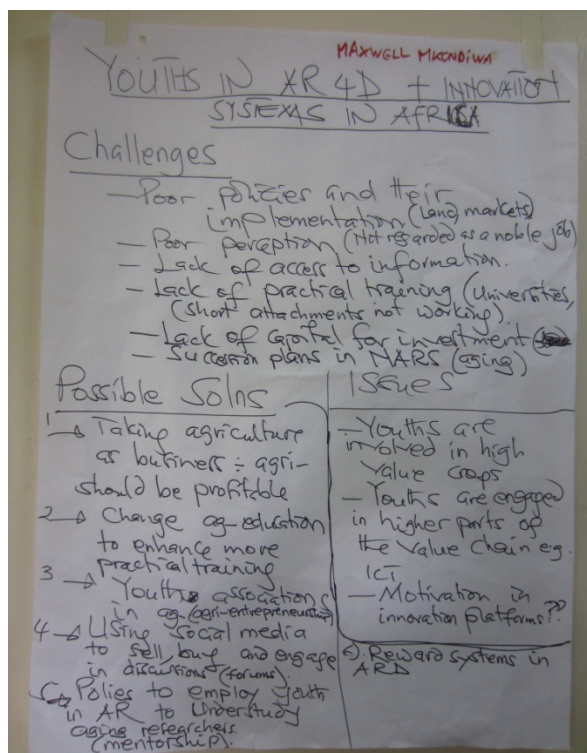 MAXWELL MKONDIWA
YOUTHS IN AR 4D + INNOVATION
SYSTEMS IN AFRICA
Challenges
— Poor policies and their
implementation (Land, markets)
— Poor perception (Not regarded as a noble job)
— Lack of access to information.
— Lack of practical training (Universities,
(short attachments not working)
— Lack of capital for investment
— Succession plans in NARS (aging)
Possible Solns
1 → Taking agriculture
as business ÷ agri-
should be profitable
2 → Change ag-education
to enhance more
practical training
3 → Youths associations
in ag. (agri-entrepreneurship)
4 → Using social media
to sell, buy and engage
in discussions (forums).
5 → Polies to employ youth
in AR to understudy
aging researchers
(mentorship).
Issues
— Youths are
involved in high
value crops
— Youths are engaged
in higher parts of
the value chain eg.
ICT
— Motivation in
innovation platforms??
6). Reward systems in
ARD